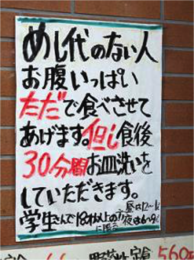 めし代のない人
お腹いっぱい
ただで食べさせて
あげます。但し食後
30分間お皿洗いを
していただきます。
学生さんで18才以上の方
に限る
定食
560